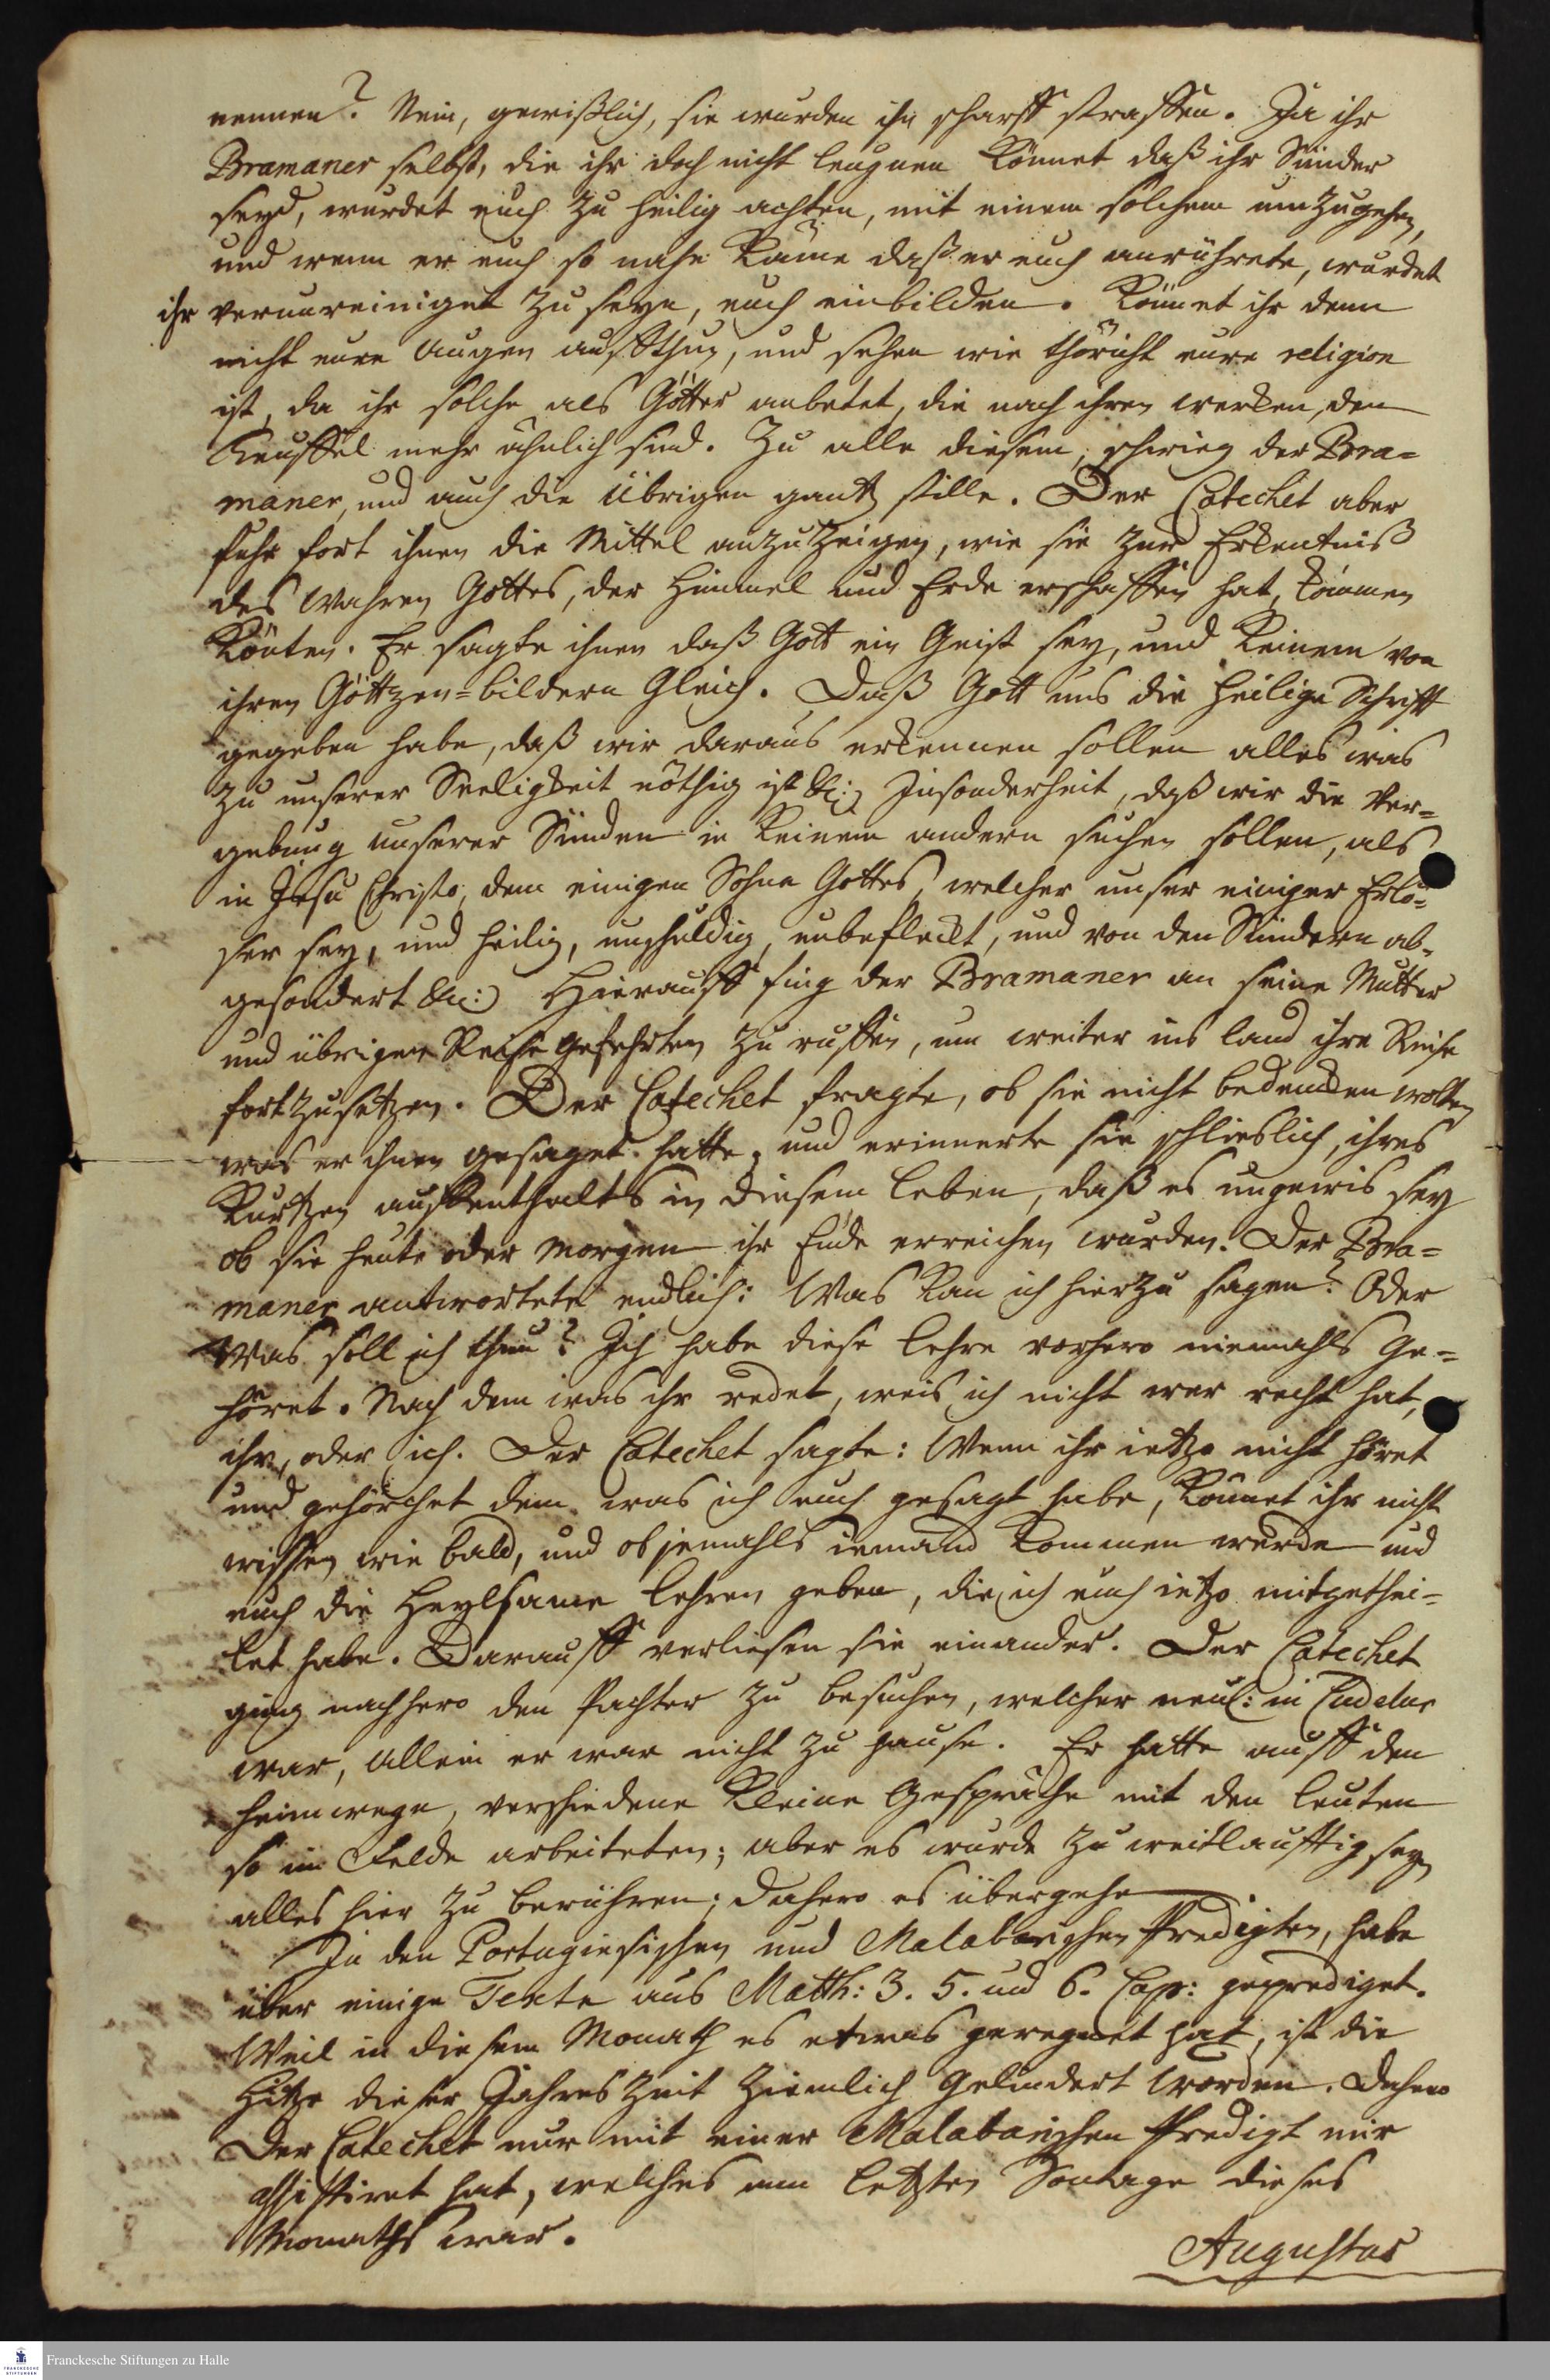 nennen? Nein, gewißlich, sie wurden ihn scharff straffen. Ja ihr
Bramaner selbst, die ihr doch nicht leugnen könnet daß ihr Sünder
seyd, wurdet euch zu heilig achten, mit einem solchem umzugehen,
und wenn er euch so nahe käme daß er euch anrührete, wurdet
ihr verunreiniget zu seyn, euch einbilden. Könnet ihr denn
nicht eure Augen auffthun, und sehen wie thöricht eure religion
ist, da ihr solche als Götter anbetet, die nach ihren wercken, den
Teuffel mehr ähnlich sind. Zu alle diesem, schwieg der Bra=
maner, und auch die übrigen gantz stille. Der Catechet aber
fuhr fort ihnen die Mittel anzuzeigen, wie sie zur Erkentniß
des Wahren Gottes, der Himmel und Erde erschaffen hat, kommen
könten. Er sagte ihnen daß Gott ein Geist sey, und keinem von
ihren Göttzen=bildern Gleich. Daß Gott uns die heilige Schrifft
gegeben habe, daß wir daraus erkennen sollen alles was
zu unserer Seeligkeit nöthig ist &c: Insonderheit, daß wir die Ver=
gebung unserer Sünden in keinem andern suchen sollen, als
in Jesu Christo, dem einigen Sohne Gottes, welcher unser einiger Erlö=
ser sey, und heilig, unschuldig, unbefleckt, und von den Sündern ab=
gesondert &c:) Hierauff fing der Bramaner an seine Mutter
und übrigen Reise Gefehrten zu ruffen, um weiter ins land ihre Reise
fortzusetzen. Der Catechet fragte, ob sie nicht bedencken wolten
was er ihnen gesaget hatte, und erinnerte sie schlieslich, ihres
kurtzen auffenthalts in diesem leben, daß es ungewis sey
ob sie heute oder morgen ihr Ende erreichen wurden. Der Bra=
maner antwortete endlich: Was kan ich hierzu sagen? Oder
Was soll ich thun? Ich habe diese lehre vorhero niemahls ge=
höret. Nach dem was ihr redet, weis ich nicht wer recht hat,
ihr, oder ich. Der Catechet sagte: Wenn ihr ietzo nicht höret
und gehorchet dem was ich euch gesagt habe, könnet ihr nicht
wissen wie bald, und ob jemahls iemand kommen werde und
euch die Heylsame lehren geben, die ich euch ietzo mitgethei=
let habe. Darauff verliesen sie einander. Der Catechet
ging nachhero den Pachter zu besuchen, welcher neul: in Cudelur
war, allein er war nicht zu hause. Er hatte auff den
heimwege, verschiedene kleine Gespräche mit den leuten
so im Felde arbeiteten; aber es wurde zu weitläufftig seyn
alles hier zu berühren; dahero es übergehe
In den Portugiesischen und Malabarischen Predigten, habe
über einige Texte aus Matth: 3. 5. und 6. Cap: geprediget.
Weil in diesem Monath es etwas geregnet hat, ist die
Hitze dieser Jahres Zeit ziemlich gelindert worden. Dahero
Der Catechet nur mit einer Malabarischen Predigt mir
assistiret hat, welches am letzten Sontage dieses
Monaths war.
Augustus
Franckesche Stiftungen zu Halle